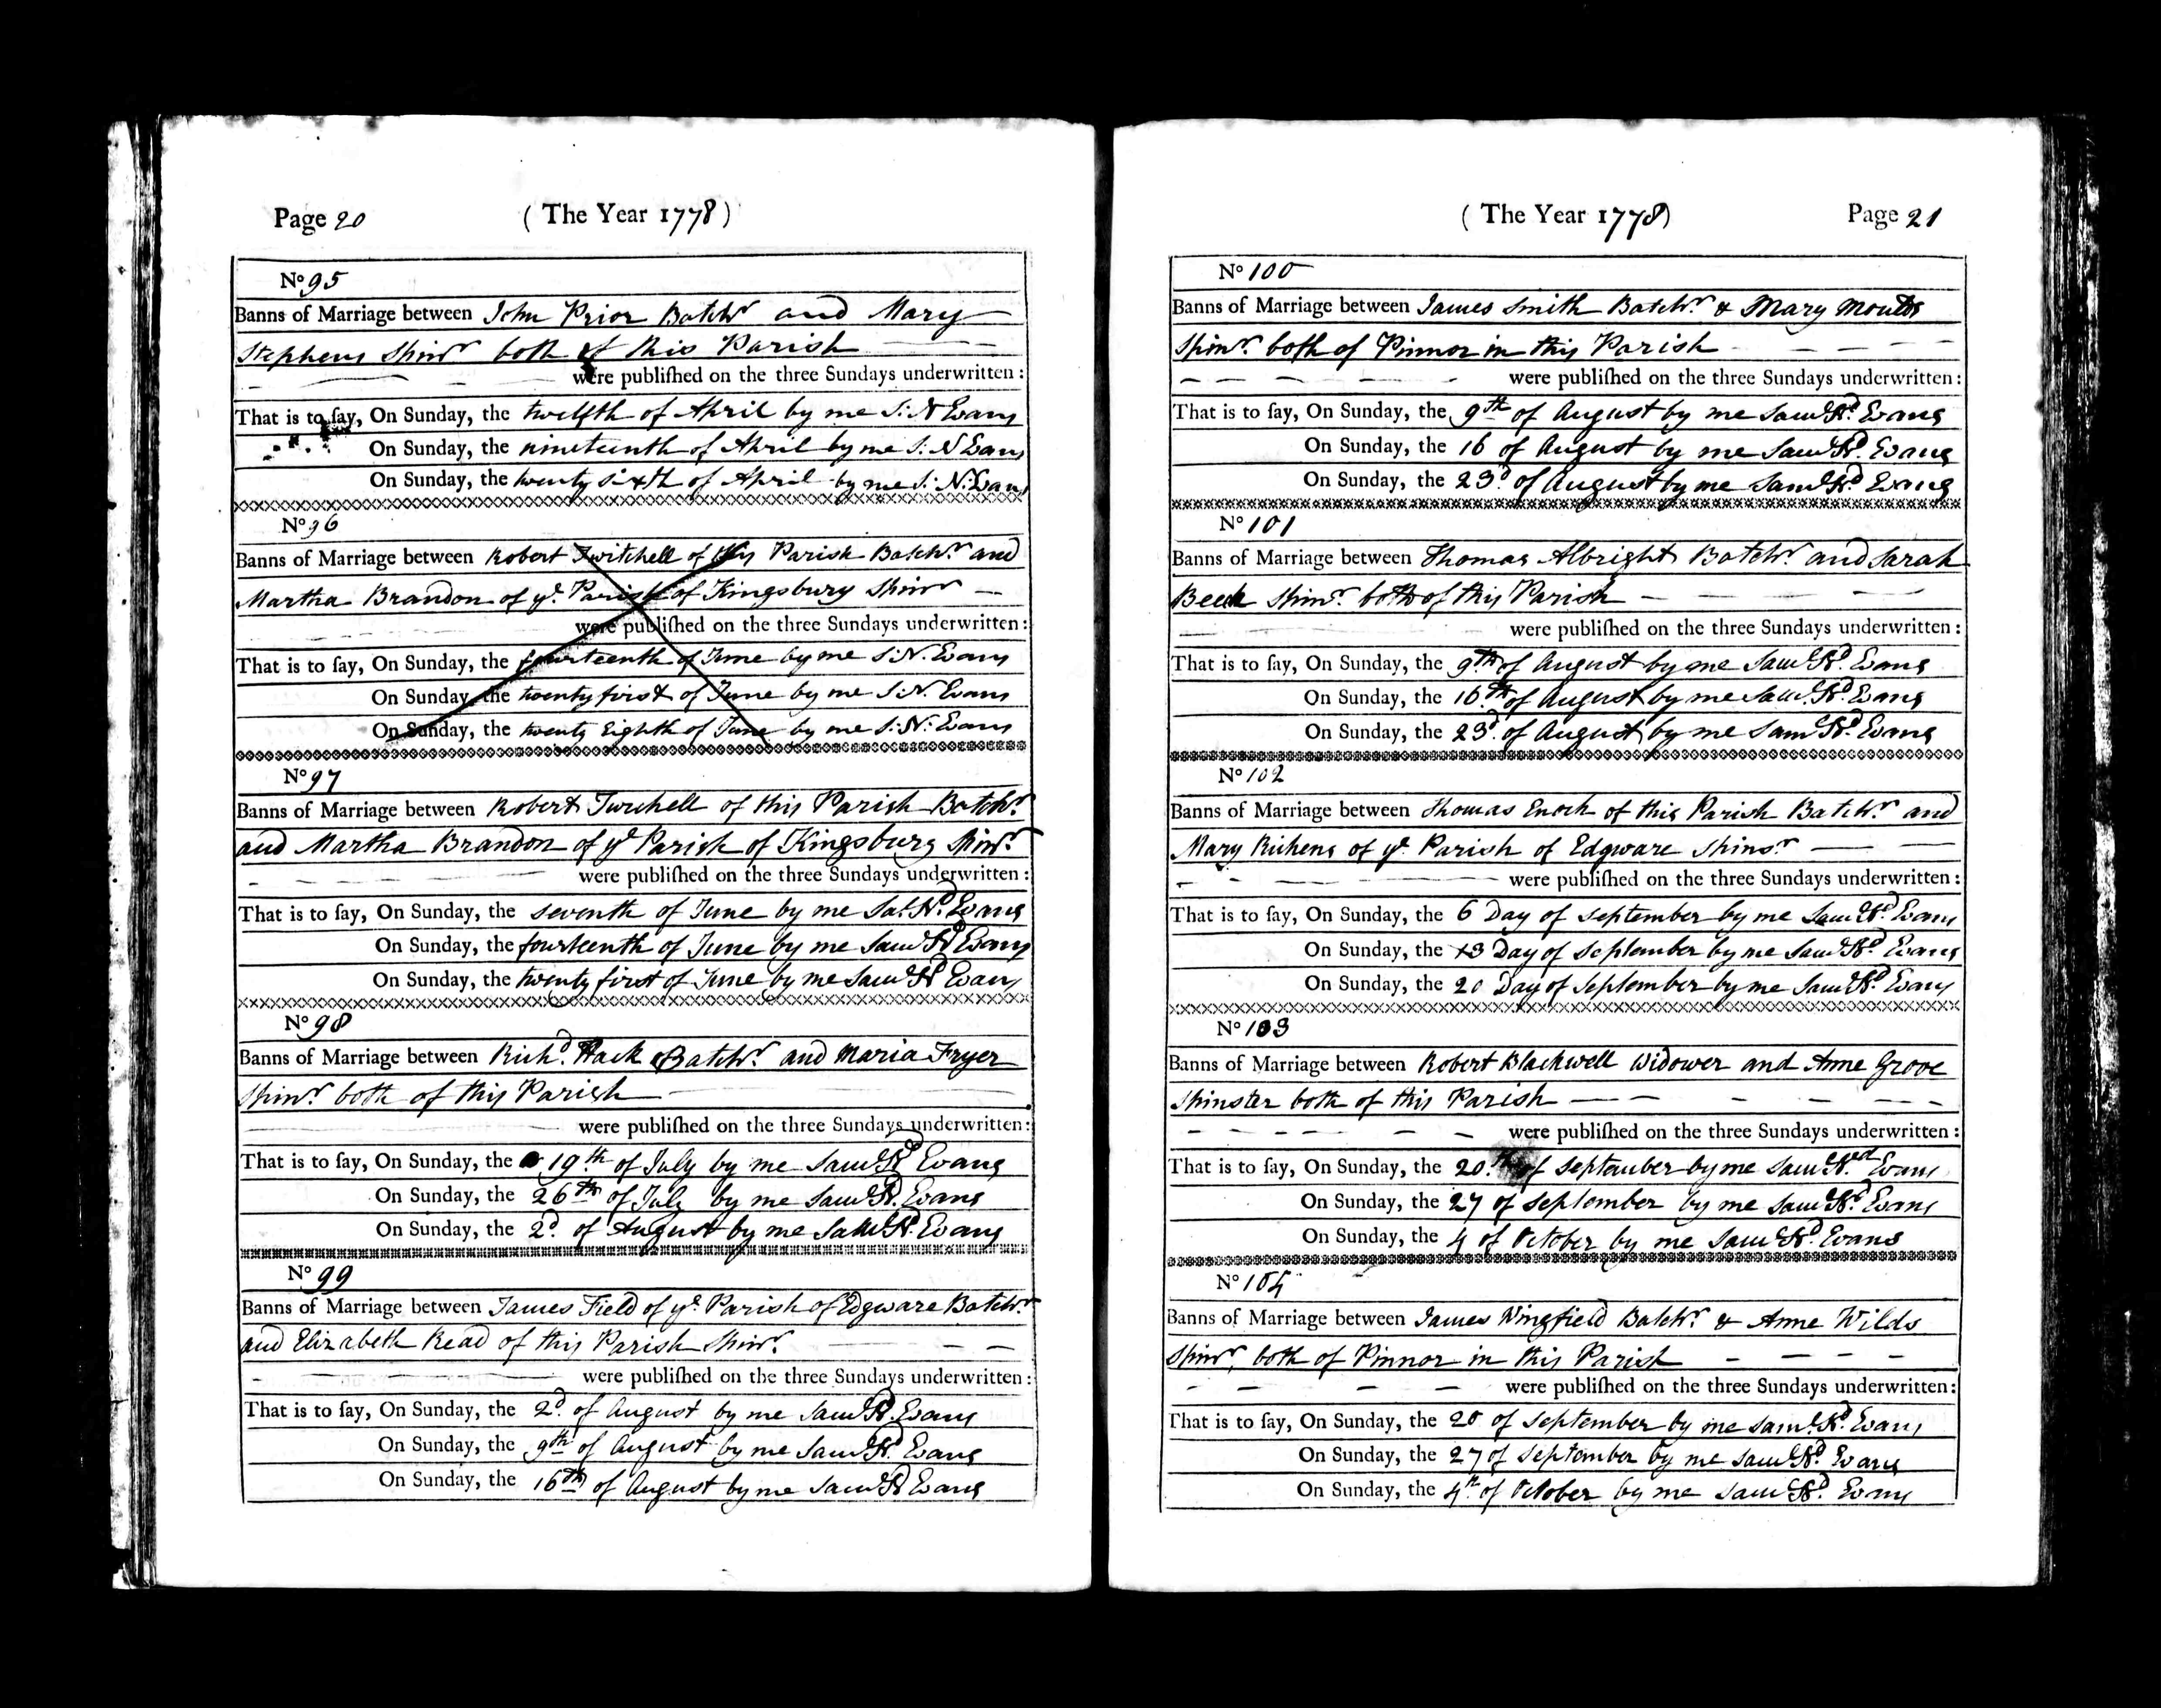 Page 20
( The Year 1778 )
No 95
Banns of Marriage between John Prior Batchr and Mary
Stephens Spinr both of this Parish
were publiſhed on the three Sundays underwritten :
That is to ſay, On Sunday, the twelfth of April by me S: N Evans
On Sunday, the nineteenth of April by me S: N Evans
On Sunday, the twenty sixth of April by me S: N: Evans
No 96
Banns of Marriage between Robert Twitchell of this Parish Batchr and
Martha Brandon of ye Parish of Kingsbury Spinr
were publiſhed on the three Sundays underwritten :
That is to ſay, On Sunday, the fourteenth of June by me S: N. Evans
On Sunday, the twenty first of June by me S: N. Evans
On Sunday, the twenty Eighth of June by me S: N: Evans
No 97
Banns of Marriage between Robert Twichell of this Parish Batchr
and Martha Brandon of ye Parish of Kingsburg Spinr
were publiſhed on the three Sundays underwritten :
That is to ſay, On Sunday, the seventh of June by me Sal Nd. Evans
On Sunday, the fourteenth of June by me Saml Nd Evans
On Sunday, the twenty first of June by me Saml Nd Evans
No 98
Banns of Marriage between Richd. Batchr. and Maria Fryer
Spinr. both of this Parish
were publiſhed on the three Sundays underwritten :
That is to ſay, On Sunday, the 19th of July by me Saml Nd Evans
On Sunday, the 26th of July by me Saml Nd. Evans
On Sunday, the 2d. of August by me Saml Nd. Evans
No 99
Banns of Marriage between James Field of ye. Parish of Edgware Batchr.
and Elizabeth Read of this Parish Spinr.
were publiſhed on the three Sundays underwritten :
That is to ſay, On Sunday, the 2d. of August by me Saml Nd. Evans
On Sunday, the 9th of August by me Saml Nd. Evans
On Sunday, the 16th of August by me Saml Nd Evans
( The Year 1778)
Page 21
No 100
Banns of Marriage between James Smith Batchr. & Mary
Spinr. both of Pinnor in this Parish
were publiſhed on the three Sundays underwritten :
That is to ſay, On Sunday, the 9th of August by me Saml Nd. Evans
On Sunday, the 16 of August by me Saml Nd. Evans
On Sunday, the 23d of August by me Saml Nd Evans
No 101
Banns of Marriage between Thomas Albright Batchr. and Sarah
Spinr. both of this Parish
were publiſhed on the three Sundays underwritten :
That is to ſay, On Sunday, the 9th of August by me Saml Nd. Evans
On Sunday, the 16th of August by me Saml. Nd. Evans
On Sunday, the 23d. of August by me Saml Nd. Evans
No 102
Banns of Marriage between Thomas Enoch of this Parish Batchr. and
Mary Richens of ye. Parish of Edgware Spinsr.
were publiſhed on the three Sundays underwritten :
That is to ſay, On Sunday, the 6 Day of September by me Saml Nd. Evans
On Sunday, the 13 Day of September by me Saml Nd. Evans
On Sunday, the 20 Day of September by me Saml Nd. Evans
No 103
Banns of Marriage between Robert Blackwell Widower and Anne Grove
Spinster both of this Parish
were publiſhed on the three Sundays underwritten :
That is to ſay, On Sunday, the 20th of September by me Saml Ned Evans
On Sunday, the 27 of September by me Saml Nd. Evans
On Sunday, the 4 of October by me Saml Nd. Evans
No 104
Banns of Marriage between James Wingfield Batchr. & Anne Wilds
Spinr. both of Pinnor in this Parish
were publiſhed on the three Sundays underwritten :
That is to ſay, On Sunday, the 20 of September by me Saml. Nd. Evans
On Sunday, the 27 of September by me Saml Nd. Evans
On Sunday, the 4th of October by me Saml Nd. Evans